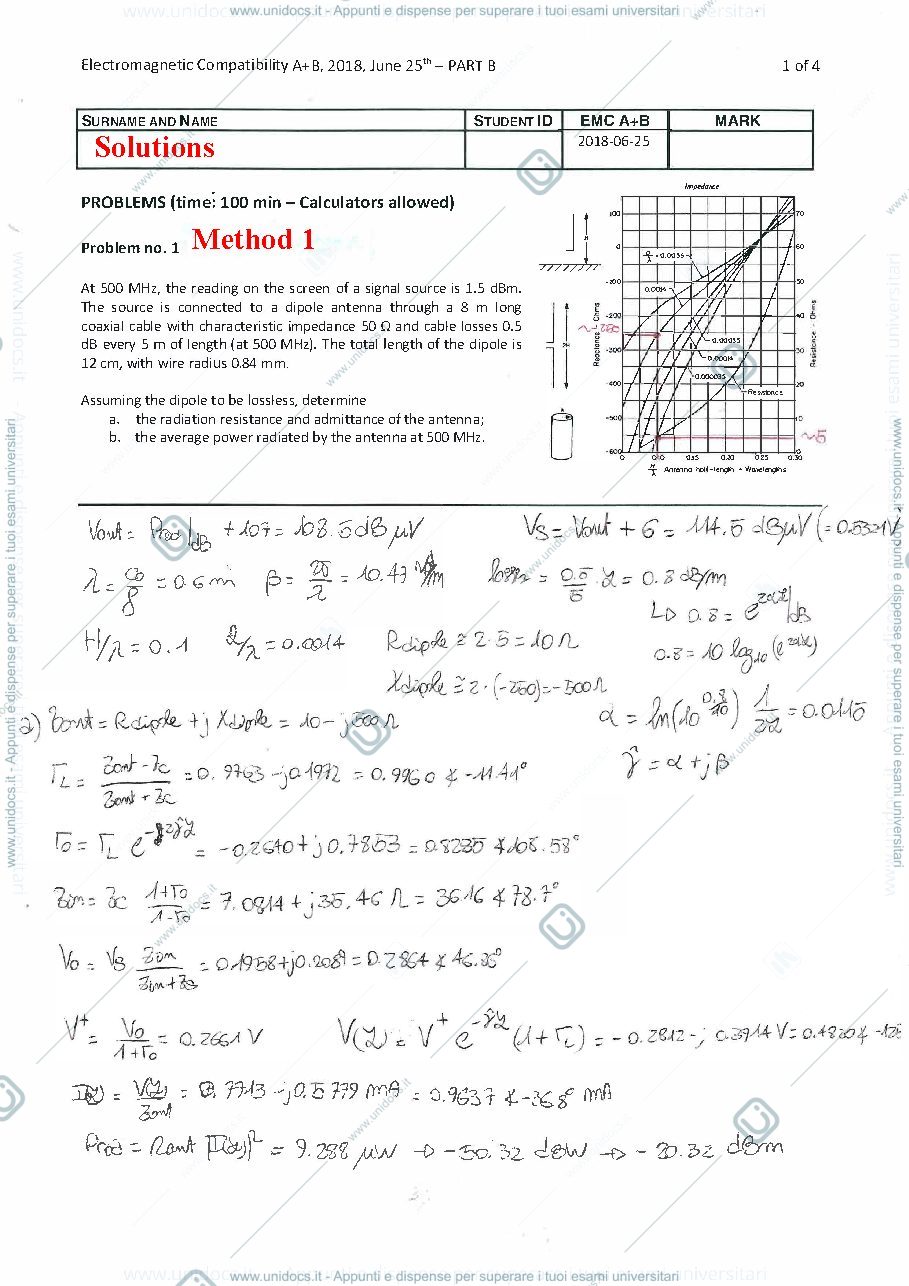 www.unidocs.it - Appunti e dispense per superare i tuoi esami universitari
Electromagnetic Compatibility A+B, 2018, June 25th – PART B 1 of 4
SURNAME AND NAME STUDENT ID EMC A+B MARK
Solutions 2018-06-25
PROBLEMS (time: 100 min – Calculators allowed)
Problem no. 1 Method 1
At 500 MHz, the reading on the screen of a signal source is 1.5 dBm.
The source is connected to a dipole antenna through a 8 m long
coaxial cable with characteristic impedance 50 Ω and cable losses 0.5
dB every 5 m of length (at 500 MHz). The total length of the dipole is
12 cm, with wire radius 0.84 mm.
Assuming the dipole to be lossless, determine
a. the radiation resistance and admittance of the antenna;
b. the average power radiated by the antenna at 500 MHz.
Impedance
0.0014
0.00035
0.00014
0.000035
Resistance
Reactance - Ohms
Resistance - Ohms
~-250
~5
0 0.10 0.15 0.20 0.25 0.30
Antenna half-length - Wavelengths
Vout = Prad|dB + 107 = 108.5 dBµV Vs = Vout + 6 = 114.5 dBµV (= 0.5321V
λ = c0/f = 0.6 m β = 2π/λ = 10.47 loss = 0.5/5 · L = 0.8 dB/m
↳ 0.8 = e^2αL|dB
H/λ = 0.1 a/λ = 0.0014 Rdipole ≅ 2·5 = 10 Ω 0.8 = 10 log10 (e^2αL)
Xdipole ≅ 2·(-250) = -500 Ω
a) Zant = Rdipole + j Xdipole = 10 - j500 Ω α = ln(10^0.8/10) 1/2L = 0.0115
γ̂ = α + jβ
ΓL = Zant - Zc / Zant + Zc = 0.9763 - j0.1972 = 0.9960 ∡ -11.41°
Γ0 = ΓL e^-2γ̂L = -0.2640 + j0.7853 = 0.8285 ∡ 108.58°
Zin = Zc 1+Γ0 / 1-Γ0 = 7.0814 + j35.46 Ω = 36.16 ∡ 78.7°
V0 = Vs Zin / Zin + Zs = 0.1958 + j0.2089 = 0.2864 ∡ 46.86°
V+ = V0 / 1+Γ0 = 0.2661 V V(L) = V+ e^-γ̂L (1+ΓL) = -0.2812 - j 0.3914 V = 0.4820 ∡ -126
I(L) = V(L) / Zant = 0.7713 - j0.5779 mA = 0.9637 ∡ -36.8° mA
Prad = Rant |I(L)|² = 9.288 µW → -50.32 dBW → -20.32 dBm
www.unidocs.it - Appunti e dispense per superare i tuoi esami universitari